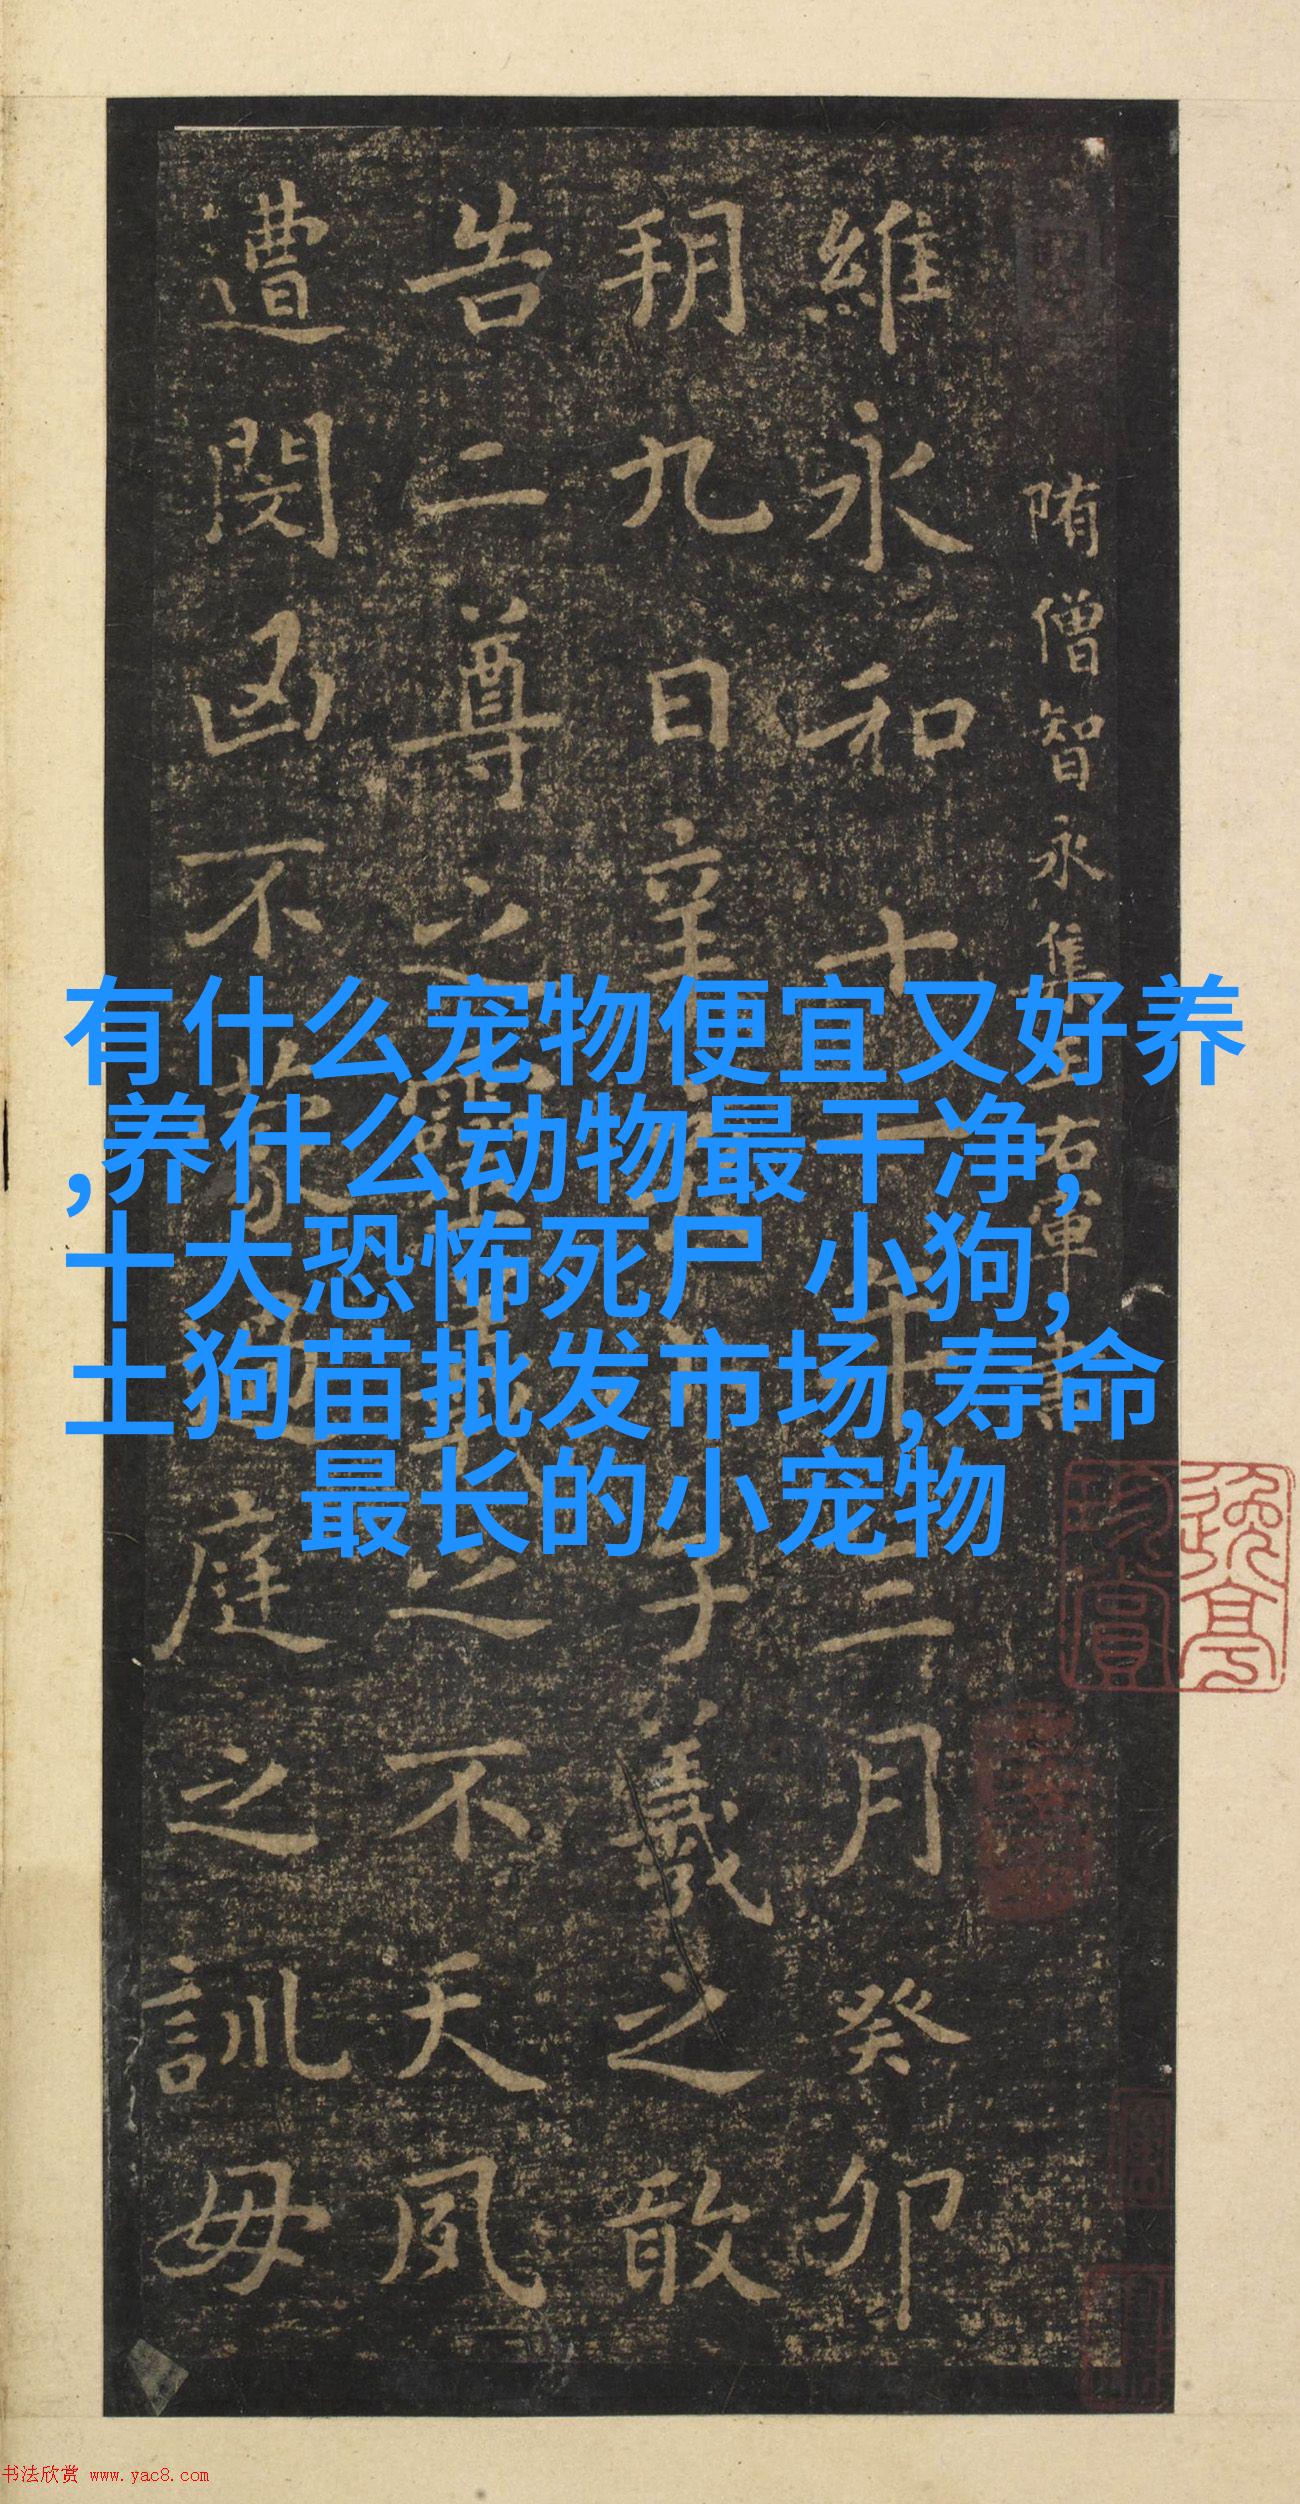 隋僧智永集王右軍書
維永和十一年三月癸卯
朔九日辛亥小子羲之敢
告二尊之靈羲之不天夙
遭閔凶不蒙過庭之訓毋
有什么宠物便宜又好养
,养什么动物最干净,
十大恐怖死尸 小狗,
土狗苗批发市场,寿命
最长的小宠物
书法欣赏 www.yac8.com